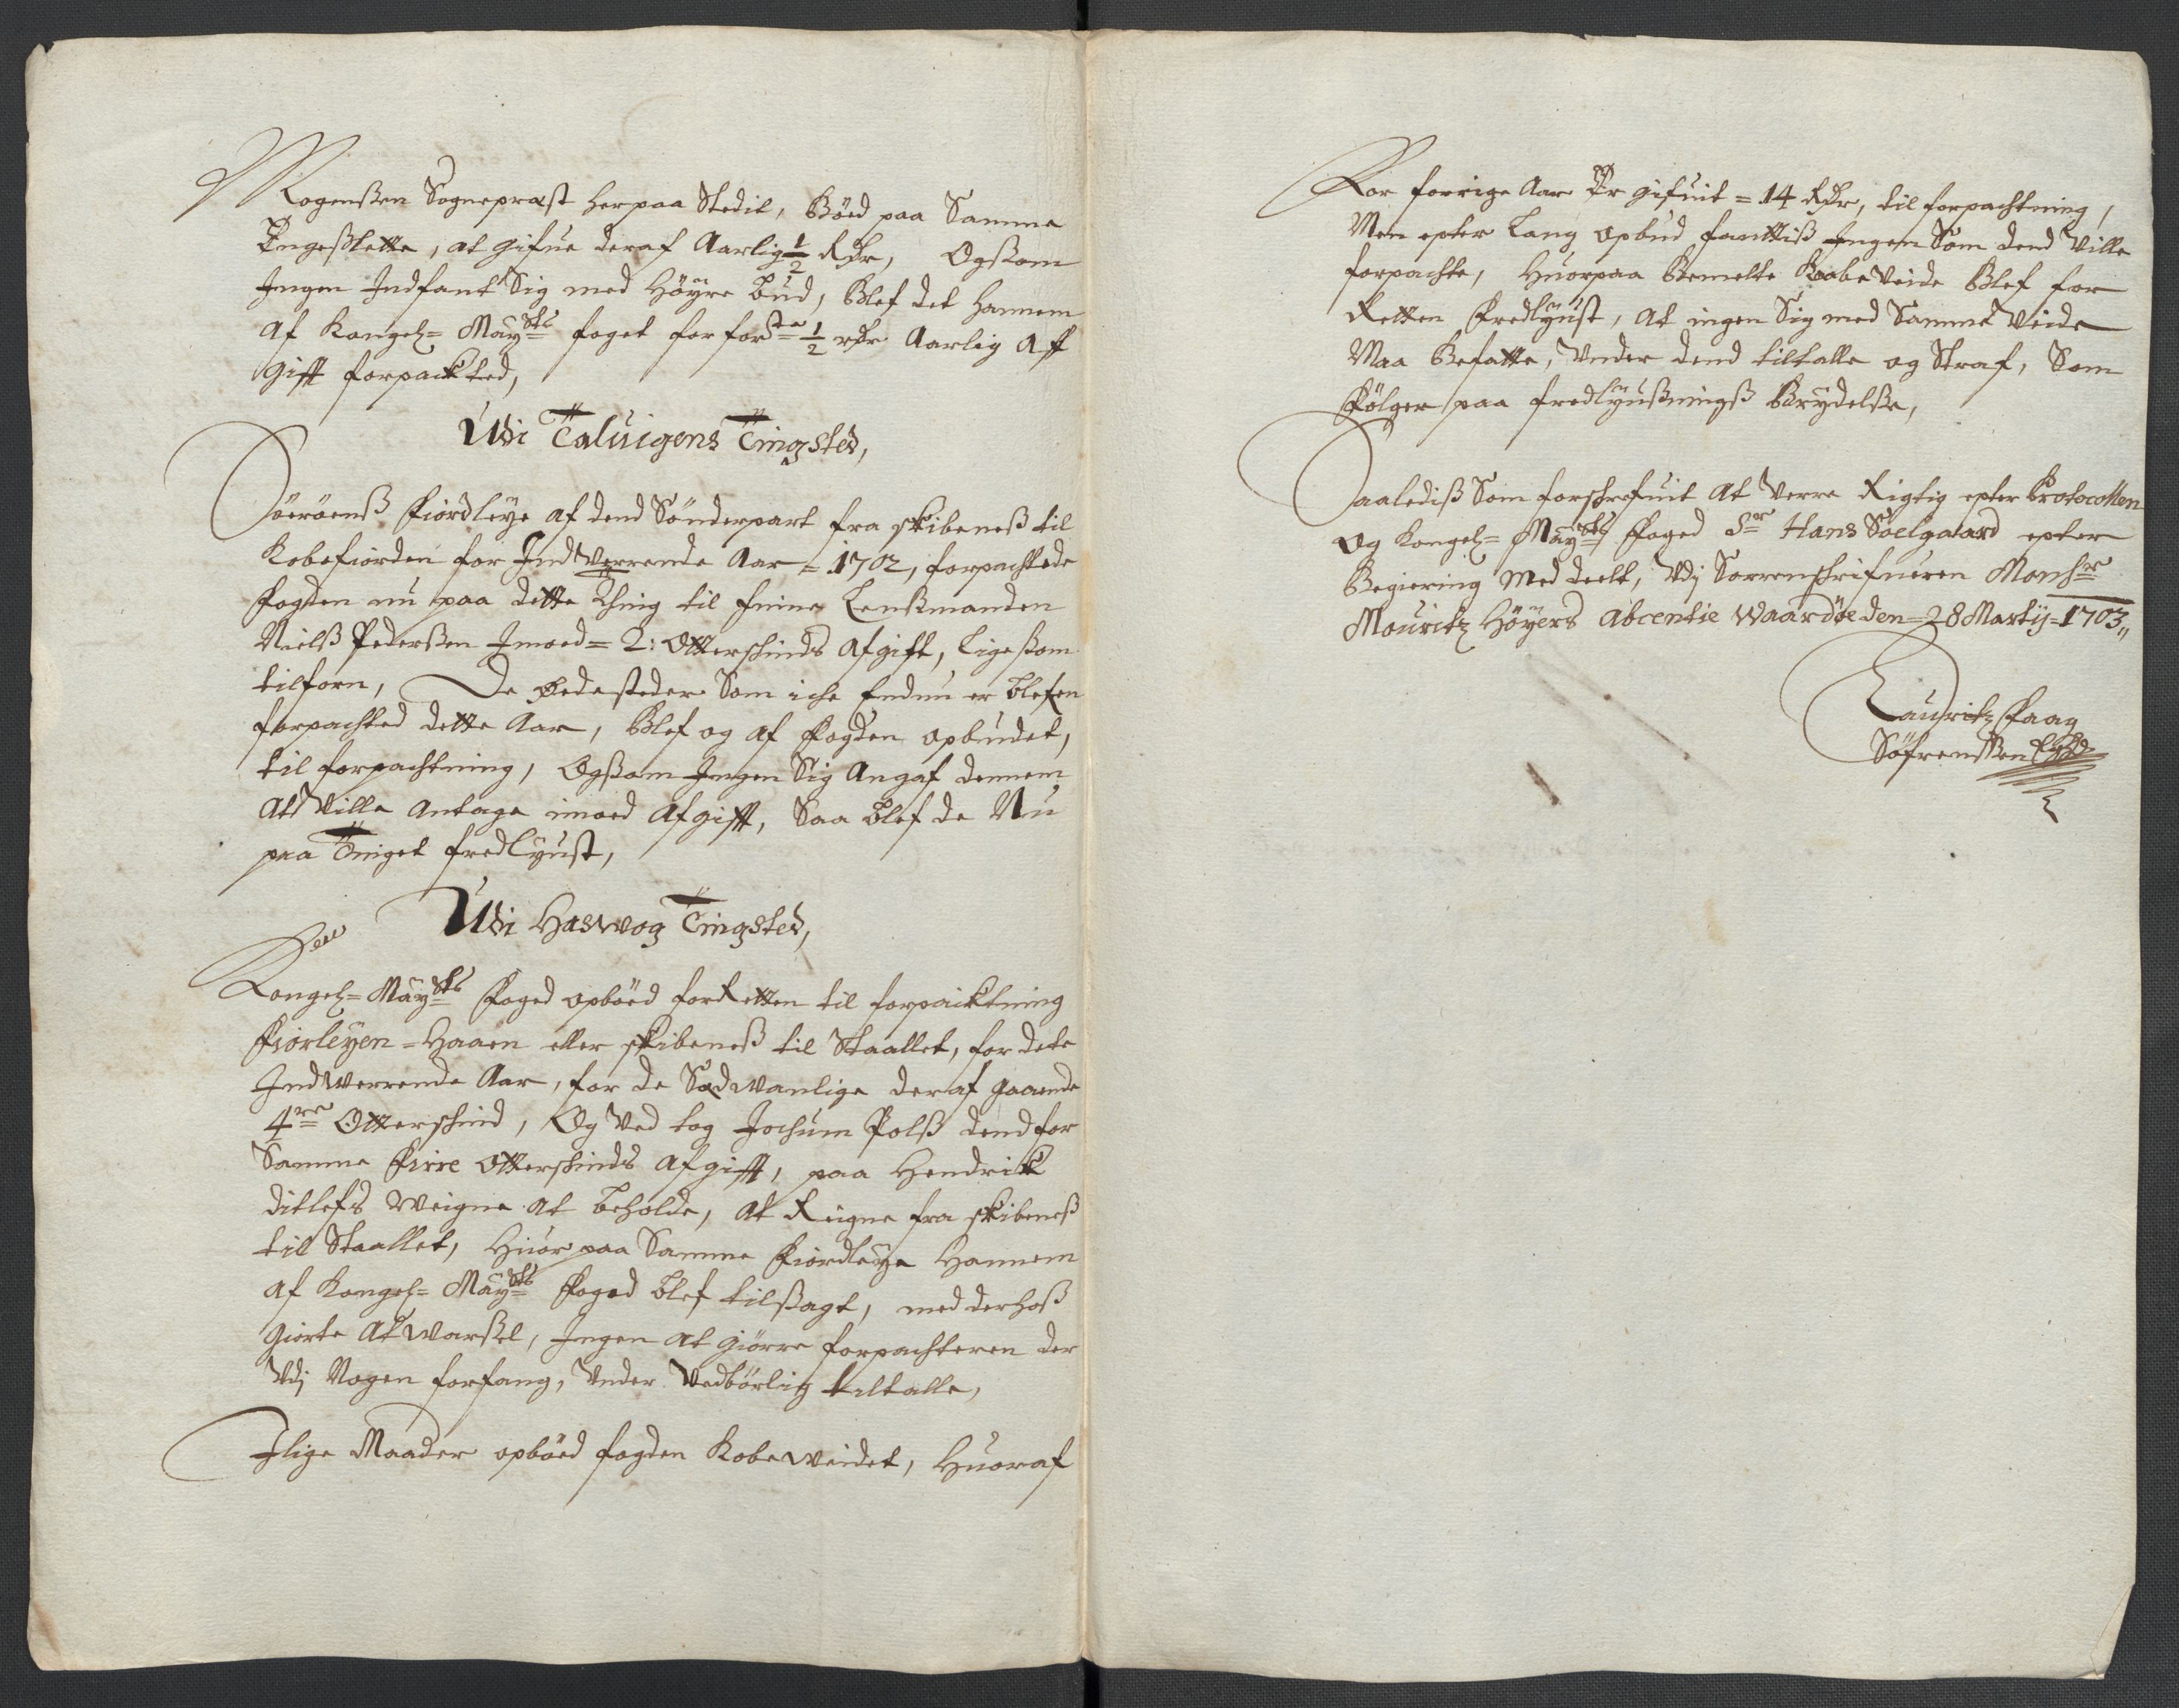 Mogenßen Sognepræst her paa Stedit, Böed paa Samme
Engesslette, at gifue deraf Aarlig ½ Rdr, Ogsaam
Ingen Indfant Sig med Höyre bud, blef det hannem
af Kongel= May^ts foget for for^ne ½ rdr Aarlig Aff
gifft forpacktted,
Udi Taluigens Tingsted,
Söeröenß Fiordleye af dend Sönderpart fra Skibeneß til
Kobefiorden for Indverrende Aar = 1702, forpachtede
fogden nu paa dette Thing til finne Lenßmanden
Nielß Pederßen Imoed = 2: Otterskinds Afgift, ligeßom
tilforn, De Eedesteder Som iche Endnu er blefen
forpachted dette Aar, blef og af Fogden opbudet,
til forpachtning, Ogsaam Ingen Sig Angaf dennem
at ville antage imoed Afgifft, Saa blef de Nu
paa Tinget fredlyust,
Udi Haswog Tingsted,
Kongel= May^ts Foged opböed for Retten til forpaicktning
Fiorleyen = Haaen eller Skibeneß til Staallet, for dete
Indwerrende Aar, for de Sædwanlige deraf gaaende
4^re Otterskind, Og Ved tog Jochum Polß dend for
Samme Fiire Otterskinds Afgifft, paa Hendrick
Ditlefs Weigne at beholde, at Reigne fra Skibeneß
til Staallet, Huor paa Samme Fiordleye Hannem
af Kongel= May^ts Foged blef tilßagt, med derhoß
giorte Atwarßel, Ingen at giörre forpachteren der
Vdj Nogen forfang, Vnder Vedbörlig tiltalle,
I lige Maader opböed fogden Kobeweidet, Huoraf
For forrige Aar Er gifuit = 14 Rdr, til forpachtning,
Men epter Lang opbud fanttiß Ingen Som dend Ville
forpachte, Huorpaa Bemelte Kaabeveide Blef for
Retten Fredlyust, at ingen Sig med Samme Veide
Maa Befatte, Vnder dend tiltalle og Straf, Som
Fölger paa fredlyußningß Brydelße,
Saalediß Som forschrefuit at Verre Rigtig epter Protocollen
og Kongel= May^ts Foged S^r Hans Soelgaard epter
Begiering Meddeelt, Vdj Sorrenskrifueren Monsr
Mouritz Höyers Abcentie Waardöe den = 28 Martij = 1703,,
Lauritz Faag
Söfrenßen